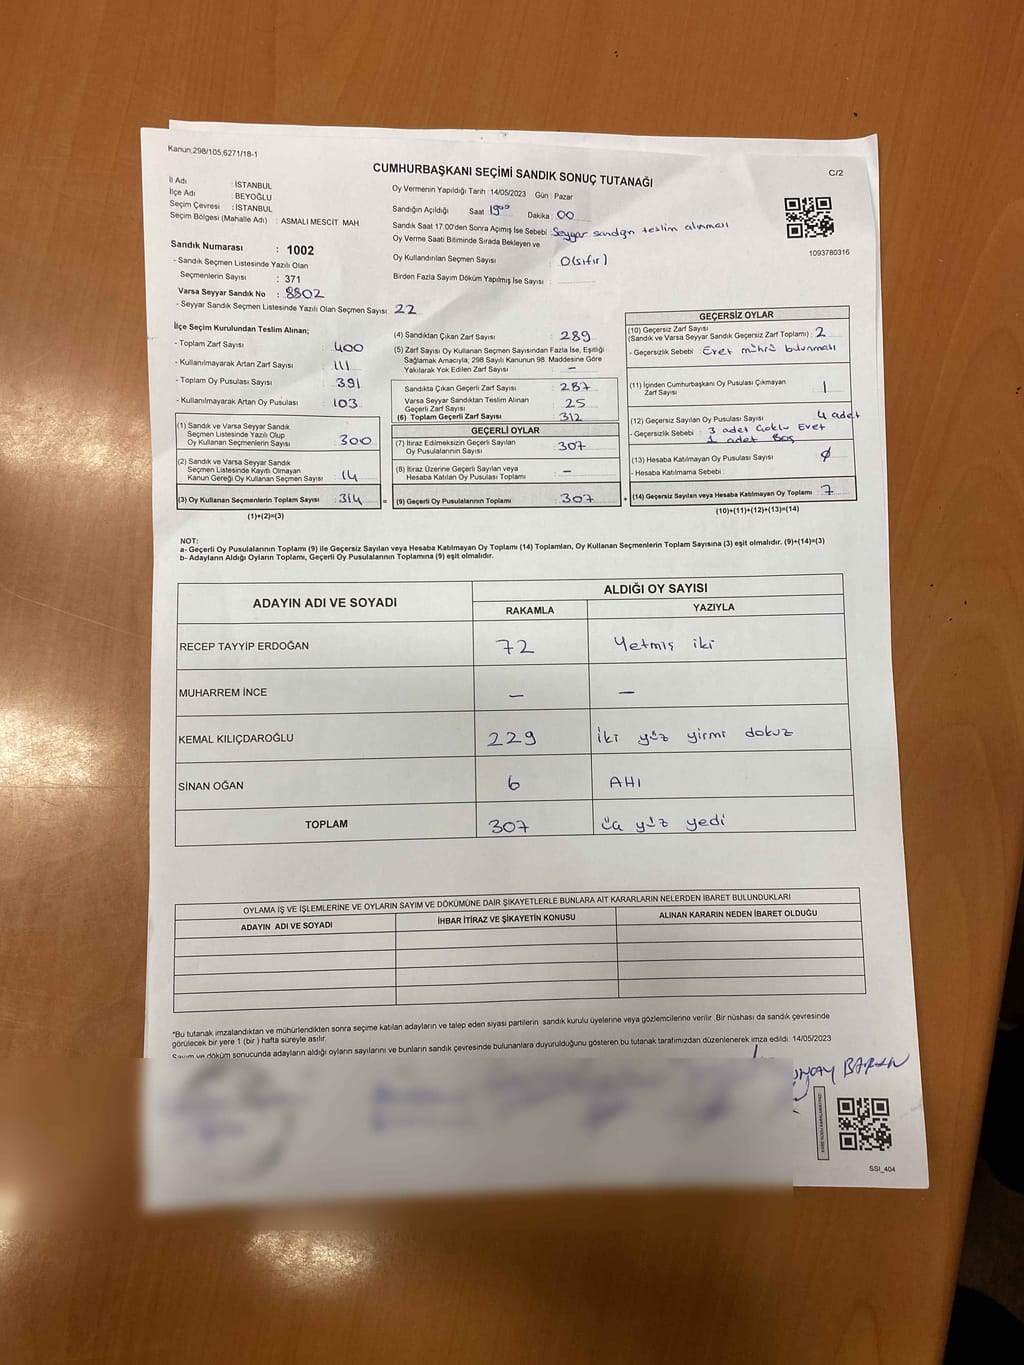 Kanun:298/105,6271/18-1
CUMHURBAŞKANI SEÇİMİ SANDIK SONUÇ TUTANAĞI
C/2
İl Adı : İSTANBUL
İlçe Adı : BEYOĞLU
Seçim Çevresi : İSTANBUL
Seçim Bölgesi (Mahalle Adı) : ASMALI MESCİT MAH
Sandık Numarası : 1002
- Sandık Seçmen Listesinde Yazılı Olan
Seçmenlerin Sayısı : 371
Varsa Seyyar Sandık No : 8802
- Seyyar Sandık Seçmen Listesinde Yazılı Olan Seçmen Sayısı: 22
Oy Vermenin Yapıldığı Tarih :14/05/2023 Gün : Pazar
Sandığın Açıldığı Saat 19:00 Dakika : 00
Sandık Saat 17:00'den Sonra Açımış İse Sebebi : Seyyar sandığın teslim alınması
Oy Verme Saati Bitiminde Sırada Bekleyen ve
Oy Kullandırılan Seçmen Sayısı 0(sıfır)
Birden Fazla Sayım Döküm Yapılmış İse Sayısı :
1093780316
İlçe Seçim Kurulundan Teslim Alınan;
- Toplam Zarf Sayısı : 400
- Kullanılmayarak Artan Zarf Sayısı : 111
- Toplam Oy Pusulası Sayısı : 391
- Kullanılmayarak Artan Oy Pusulası : 103
(1) Sandık ve Varsa Seyyar Sandık
Seçmen Listesinde Yazılı Olup
Oy Kullanan Seçmenlerin Sayısı : 300
(2) Sandık ve Varsa Seyyar Sandık
Seçmen Listesinde Kayıtlı Olmayan
Kanun Gereği Oy Kullanan Seçmen Sayısı : 14
(3) Oy Kullanan Seçmenlerin Toplam Sayısı : 314 =
(1)+(2)=(3)
(4) Sandıktan Çıkan Zarf Sayısı : 289
(5) Zarf Sayısı Oy Kullanan Seçmen Sayısından Fazla İse, Eşitliği
Sağlamak Amacıyla, 298 Sayılı Kanunun 98. Maddesine Göre
Yakılarak Yok Edilen Zarf Sayısı : –
Sandıkta Çıkan Geçerli Zarf Sayısı : 287
Varsa Seyyar Sandıktan Teslim Alınan
Geçerli Zarf Sayısı : 25
(6) Toplam Geçerli Zarf Sayısı : 312
GEÇERLİ OYLAR
(7) İtiraz Edilmeksizin Geçerli Sayılan
Oy Pusulasının Sayısı : 307
(8) İtiraz Üzerine Geçerli Sayılan veya
Hesaba Katılan Oy Pusulası Toplamı : –
(9) Geçerli Oy Pusulalarının Toplamı : 307 +
GEÇERSİZ OYLAR
(10) Geçersiz Zarf Sayısı
(Sandık ve Varsa Seyyar Sandık Geçersiz Zarf Toplamı) : 2
- Geçersizlik Sebebi : Evet mührü bulunması
(11) İçinden Cumhurbaşkanı Oy Pusulası Çıkmayan
Zarf Sayısı : 1
(12) Geçersiz Sayılan Oy Pusulası Sayısı : 4 adet
- Geçersizlik Sebebi : 3 adet Çoklu Evet
1 adet Boş
(13) Hesaba Katılmayan Oy Pusulası Sayısı : ∅
- Hesaba Katılmama Sebebi :
(14) Geçersiz Sayılan veya Hesaba Katılmayan Oy Toplamı : 7
(10)+(11)+(12)+(13)=(14)
NOT:
a- Geçerli Oy Pusulalarının Toplamı (9) ile Geçersiz Sayılan veya Hesaba Katılmayan Oy Toplamı (14) Toplamları, Oy Kullanan Seçmenlerin Toplam Sayısına (3) eşit olmalıdır. (9)+(14)=(3)
b- Adayların Aldığı Oyların Toplamı, Geçerli Oy Pusulalarının Toplamına (9) eşit olmalıdır.
ADAYIN ADI VE SOYADI
ALDIĞI OY SAYISI
RAKAMLA YAZIYLA
RECEP TAYYİP ERDOĞAN 72 Yetmiş iki
MUHARREM İNCE – –
KEMAL KILIÇDAROĞLU 229 iki yüz yirmi dokuz
SİNAN OĞAN 6 AHI
TOPLAM 307 üç yüz yedi
OYLAMA İŞ VE İŞLEMLERİNE VE OYLARIN SAYIM VE DÖKÜMÜNE DAİR ŞİKAYETLERLE BUNLARA AİT KARARLARIN NELERDEN İBARET BULUNDUKLARI
ADAYIN ADI VE SOYADI İHBAR İTİRAZ VE ŞİKAYETİN KONUSU ALINAN KARARIN NEDEN İBARET OLDUĞU
*Bu tutanak imzalandıktan ve mühürlendikten sonra seçime katılan adayların ve talep eden siyasi partilerin sandık kurulu üyelerine veya gözlemcilerine verilir. Bir nüshası da sandık çevresinde
görülecek bir yere 1 (bir ) hafta süreyle asılır.
Sayım ve döküm sonucunda adayların aldığı oyların sayılarını ve bunların sandık çevresinde bulunanlara duyurulduğunu gösteren bu tutanak tarafımızdan düzenlenerek imza edildi. 14/05/2023
SSI_404